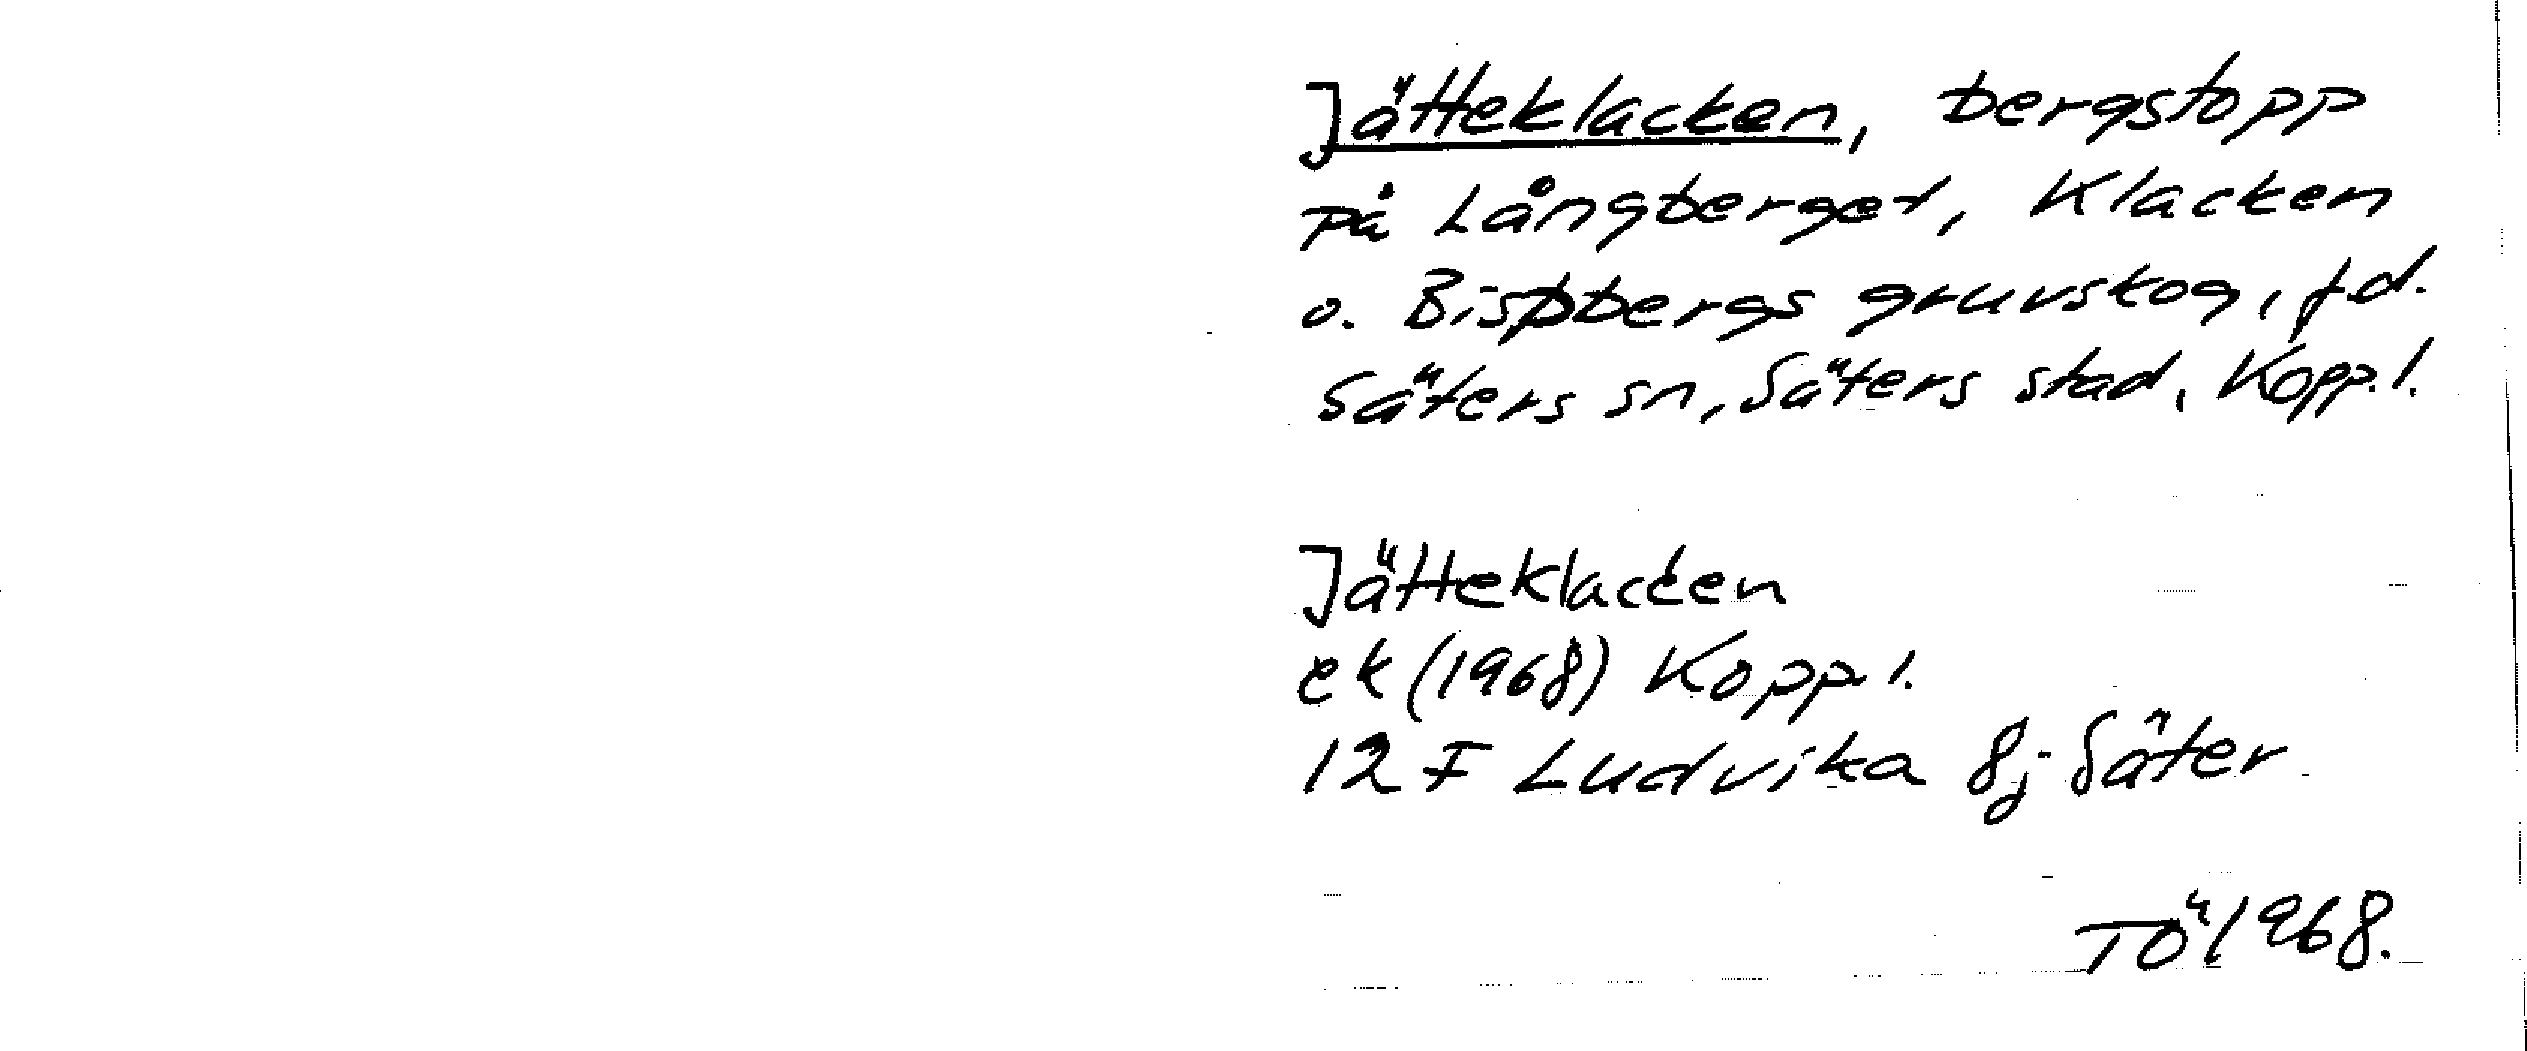 Jätteklacken, bergstopp
på Långberget, Klacken
o. Bispbergs gruvskog, f.d.
Säters sn, Säters stad, Kopp.l.
Jätteklacken
ek (1968) Kopp.l.
12 F Ludvika 8j Säter
TÖ 1968.